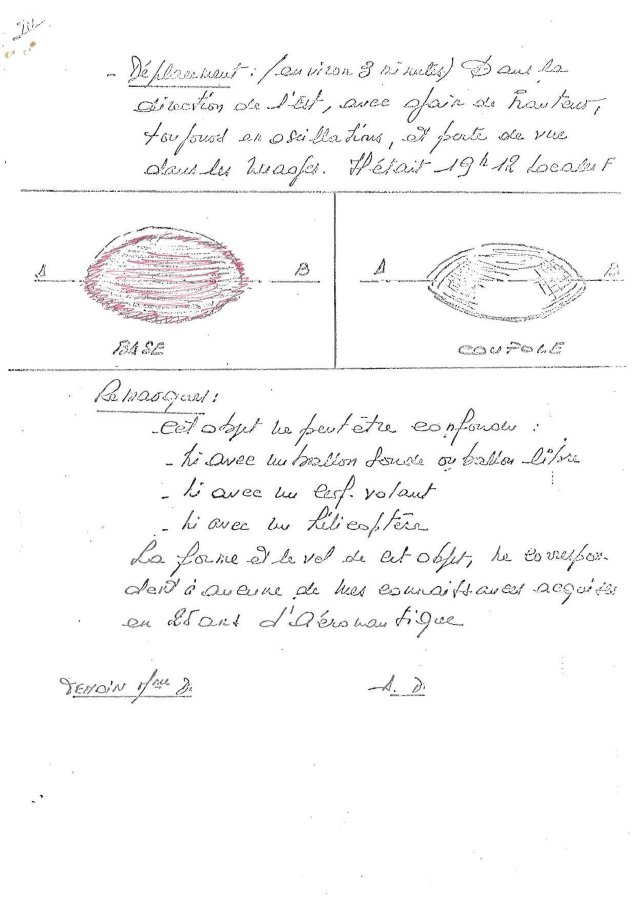 - Déplacement : (environ 3 minutes) Dans la
direction de l'Est, avec gain de hauteur,
toujours en oscillations, et perte de vue
dans les nuages. Il était 19h12 Locales F
A B
BASE
A B
COUPOLE
Remarques :
Cet objet ne peut être confondu :
- ni avec un ballon sonde ou ballon libre
- ni avec un cerf-volant
- ni avec un hélicoptère
La forme et le vol de cet objet, ne correspon-
dent à aucune de mes connaissances acquises
en 25 ans d'Aéronautique
TEMOIN Mme D. A. D.